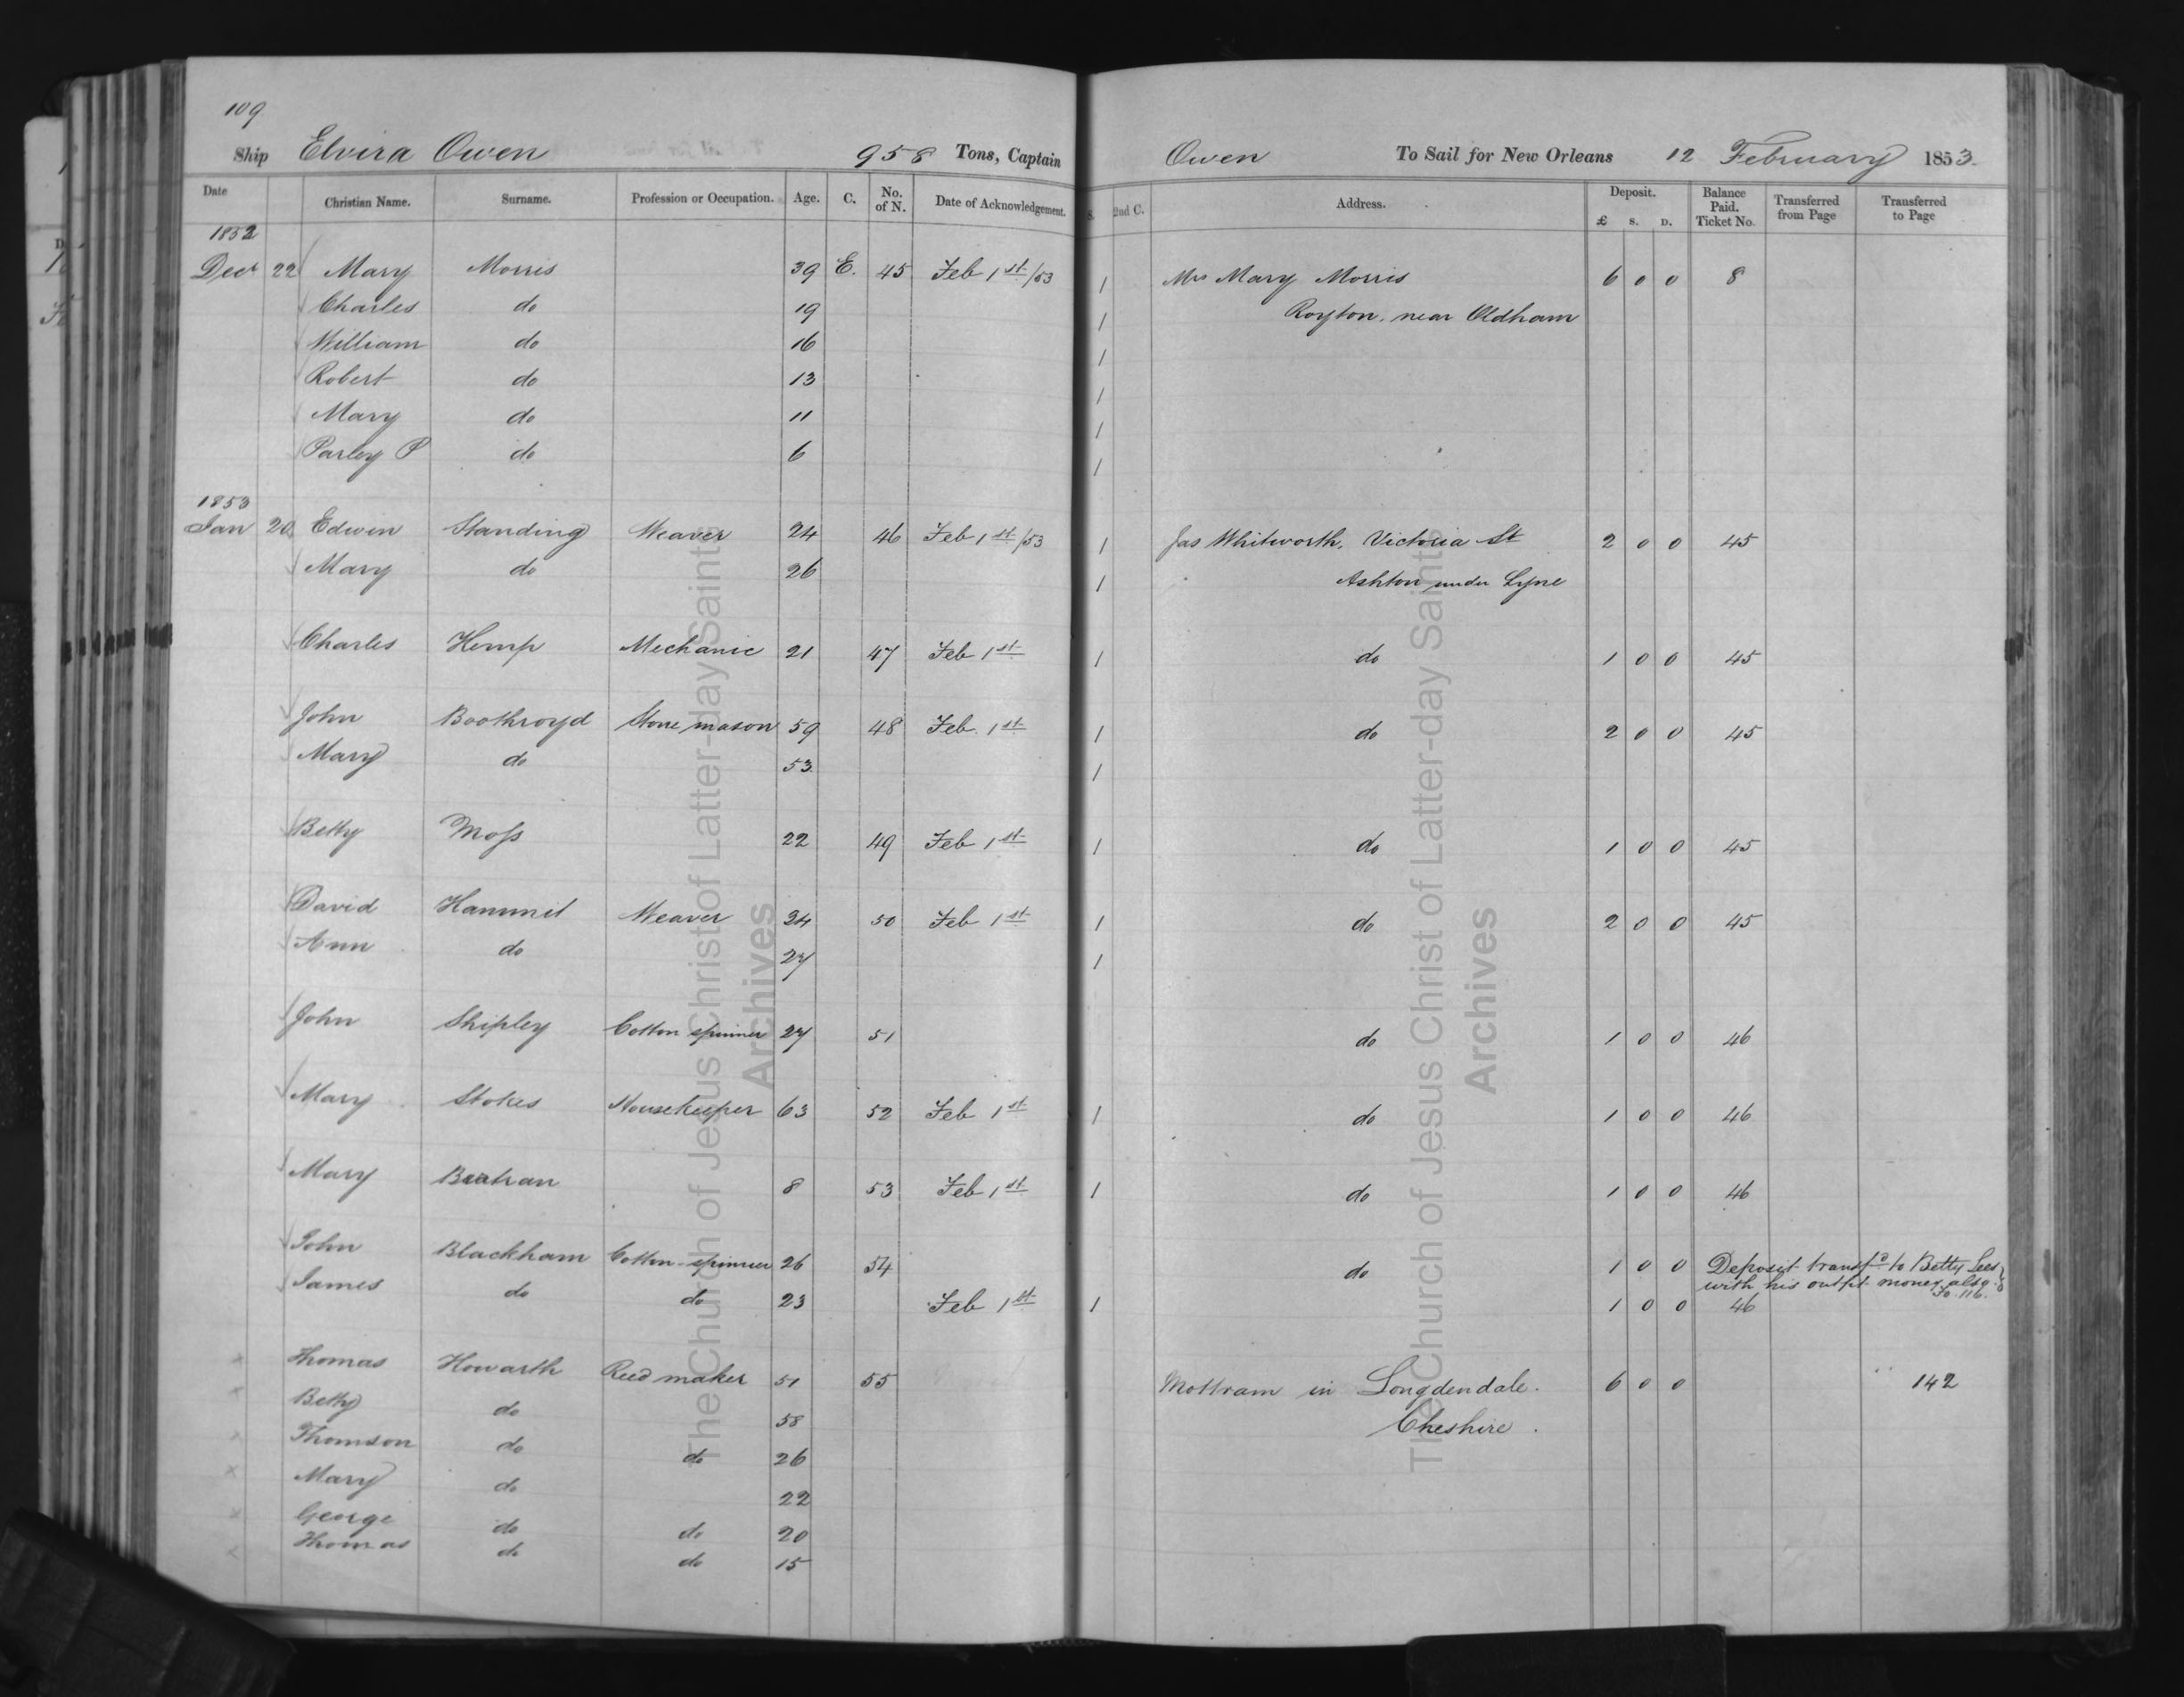 109
Ship Elvira Owen 958 Tons, Captain Owen To Sail for New Orleans 12 February 1853
Date Christian Name. Surname. Profession or Occupation. Age. C. No. of N. Date of Acknowledgement. S. 2nd C. Address. Deposit. £ S. D. Balance Paid. Ticket No. Transferred from Page Transferred to Page
1852
Decr 22 Mary Morris 39 E. 45 Feb 1st/53 1 Mrs Mary Morris 6 0 0 8
Charles do 19 1 Royton, near Oldham
William do 16 1
Robert do 13 1
Mary do 11 1
Parley P do 6 1
1853
Jan 20 Edwin Standing Weaver 24 46 Feb 1st/53 1 Jas Whitworth, Victoria St 2 0 0 45
Mary do 26 1 Ashton under Lyne
Charles Hemp Mechanic 21 47 Feb 1st 1 do 1 0 0 45
John Boothroyd Stone mason 59 48 Feb. 1st 1 do 2 0 0 45
Mary do 53 1
Betty Moss 22 49 Feb 1st 1 do 1 0 0 45
David Hammit Weaver 24 50 Feb 1st 1 do 2 0 0 45
Ann do 27 1
John Shipley Cotton spinner 27 51 do 1 0 0 46
Mary Stokes Housekeeper 63 52 Feb 1st 1 do 1 0 0 46
Mary 8 53 Feb 1st 1 do 1 0 0 46
John Blackham Cotton-spinner 26 54 do 1 0 0 Deposit transfd to Betty Lees
with his outfit money also. Fo. 116.
James do do 23 Feb 1st 1 1 0 0 46
Thomas Howarth Reed maker 51 55 Mottram in Longdendale. 6 0 0 142
Betty do 58 Cheshire.
Thomson do do 26
Mary do 22
George do do 20
Thomas do do 15
The Church of Jesus Christ of Latter-day Saints
Archives
The Church of Jesus Christ of Latter-day Saints
Archives